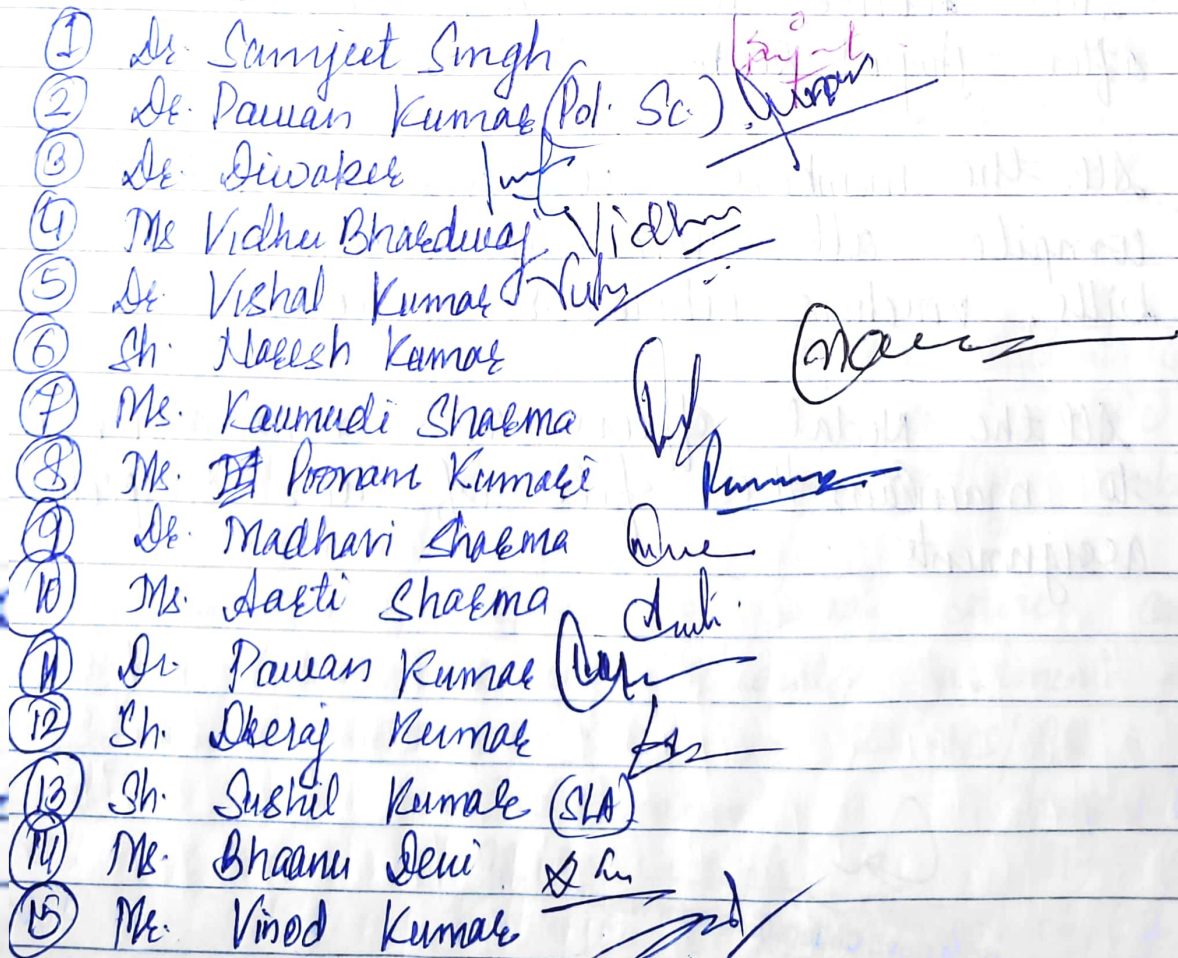 1 Dr. Samjeet Singh
2 Dr. Pawan Kumar (Pol. Sc.)
3 Dr. Diwaker
4 Ms Vidhu Bhardwaj Vidhu
5 Dr. Vishal Kumar
6 Sh. Naresh Kumar
7 Ms. Kaumudi Sharma
8 Ms. Poonam Kumari
9 Dr. Madhavi Sharma
10 Ms. Aarti Sharma
11 Dr. Pawan Kumar
12 Sh. Dheraj Kumar
13 Sh. Sushil Kumar (SLA)
14 Ms. Bhaanu Devi
15 Mr. Vinod Kumar